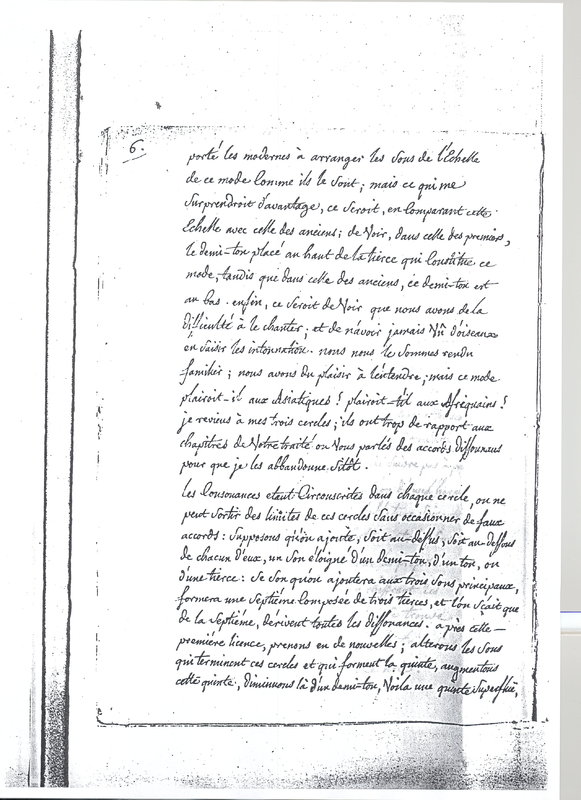 6.
porté les modernes à arranger les sons de l'Echelle
de ce mode Comme ils le sont ; mais ce qui me
surprendroit d'avantage, ce seroit, en Comparant cette
Echelle avec celle des anciens ; de Voir, dans celle des premiers,
le demi-ton placé au haut de la tierce qui Constitue ce
mode, tandis que dans celle des anciens, ce demi-ton est
au bas . enfin, ce seroit de Voir que nous avons de la
difficulté à le chanter ; et de n'avoir jamais Vû d'oiseaux
en saisir les intonnation . nous nous le sommes rendu
familier ; nous avons du plaisir à l'entendre ; mais ce mode
plairoit-il aux Asiatiques ? plairoit-t'il aux Afriquains ?
je reviens à mes trois cercles ; ils ont trop de rapport aux
chapitres de Votre traité ou Vous parlés des accords dissonnans
pour que je les abbandonne sitôt .
les Consonances etant Circonscrites dans chaque cercle, on ne
peut sortir des limites de ces cercles sans occasionner de faux
accords : supposons qu'on ajoute, soit au-dessus, soit au-dessous
de chacun d'eux, un son éloigné d'un demi-ton, d'un ton, ou
d'une tierce : se son qu'on ajoutera aux trois sons principaux,
formera une septiéme Composée de trois tierces, et l'on sçait que
de la septiéme, dérivent toutes les dissonances . après cette
premiére licence, prenons en de nouvelles ; alterons les sons
qui terminent ces cercles et qui forment la quinte, augmentons
cette quinte, diminuons là d'un demi-ton, Voila une quinte superflüe,